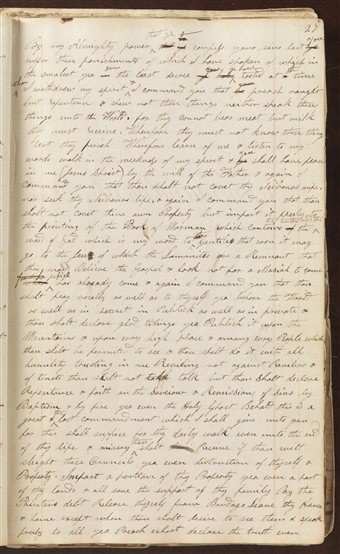 27
By my Almighty power confess your sins lest
suffer these punishments of which I have spoken of which in
the smallest yea even in the least decree ye tasted at the time
I withdrew my spirit & I command you that ye preach naught
but repentance & shew not these things neither speak these
things unto the World. for they cannot bear meat but milk
they must receive. Wherefore they must not know these things
lest they perish Wherefore learn of me & listen to my
words walk in the meekness of my spirit & ye shall have peace
in me Jesus Christ by the will of the Father & again I
command you that thou shalt not covet thy Neighbours wife.
nor seek thy Neighbours life. & again I command you that thou
shalt not covet thine own Property but impart it freely to
the printing of the Book of Mormon which contains the
word of God which is my word to Gentile that soon it may
go to the Jew of which the Lamanites are a Remnant that
they may believe the Gospel & look not for a Massiah to come
which has already come & again I command you that thou
shalt pray vocally as well as to thyself yea before the World
as well as in secret in Publick as well as in private &
thou shalt declare glad tidings yea Publish it upon the
Mountains & upon every high place & among every People which
thou shalt be permited to see & thou shalt do it with all
humility trusting in me Reviling not against Revilers &
of tenets thou shalt not talk but thou shalt declare
Repentance & faith on the Saviour & Remission of Sins by
Baptism & by fire yea even the Holy Ghost Behold this is a
great & the last commandment which I shall give unto you
for this shall suffice for thy daily walk even unto the end
of thy life & misery thou shalt Receive if thou wilt
slieght these Councils yea even distruction of thyself &
Property. Impart a portion of thy Property yea even a part
of thy lands & all save the support of thy family Pay the
Printers debt Release thyself from Bondage Leave thy House
& home except when thou shalt desire to see them & speak
freely to all yea Preach exhort declare the truth even